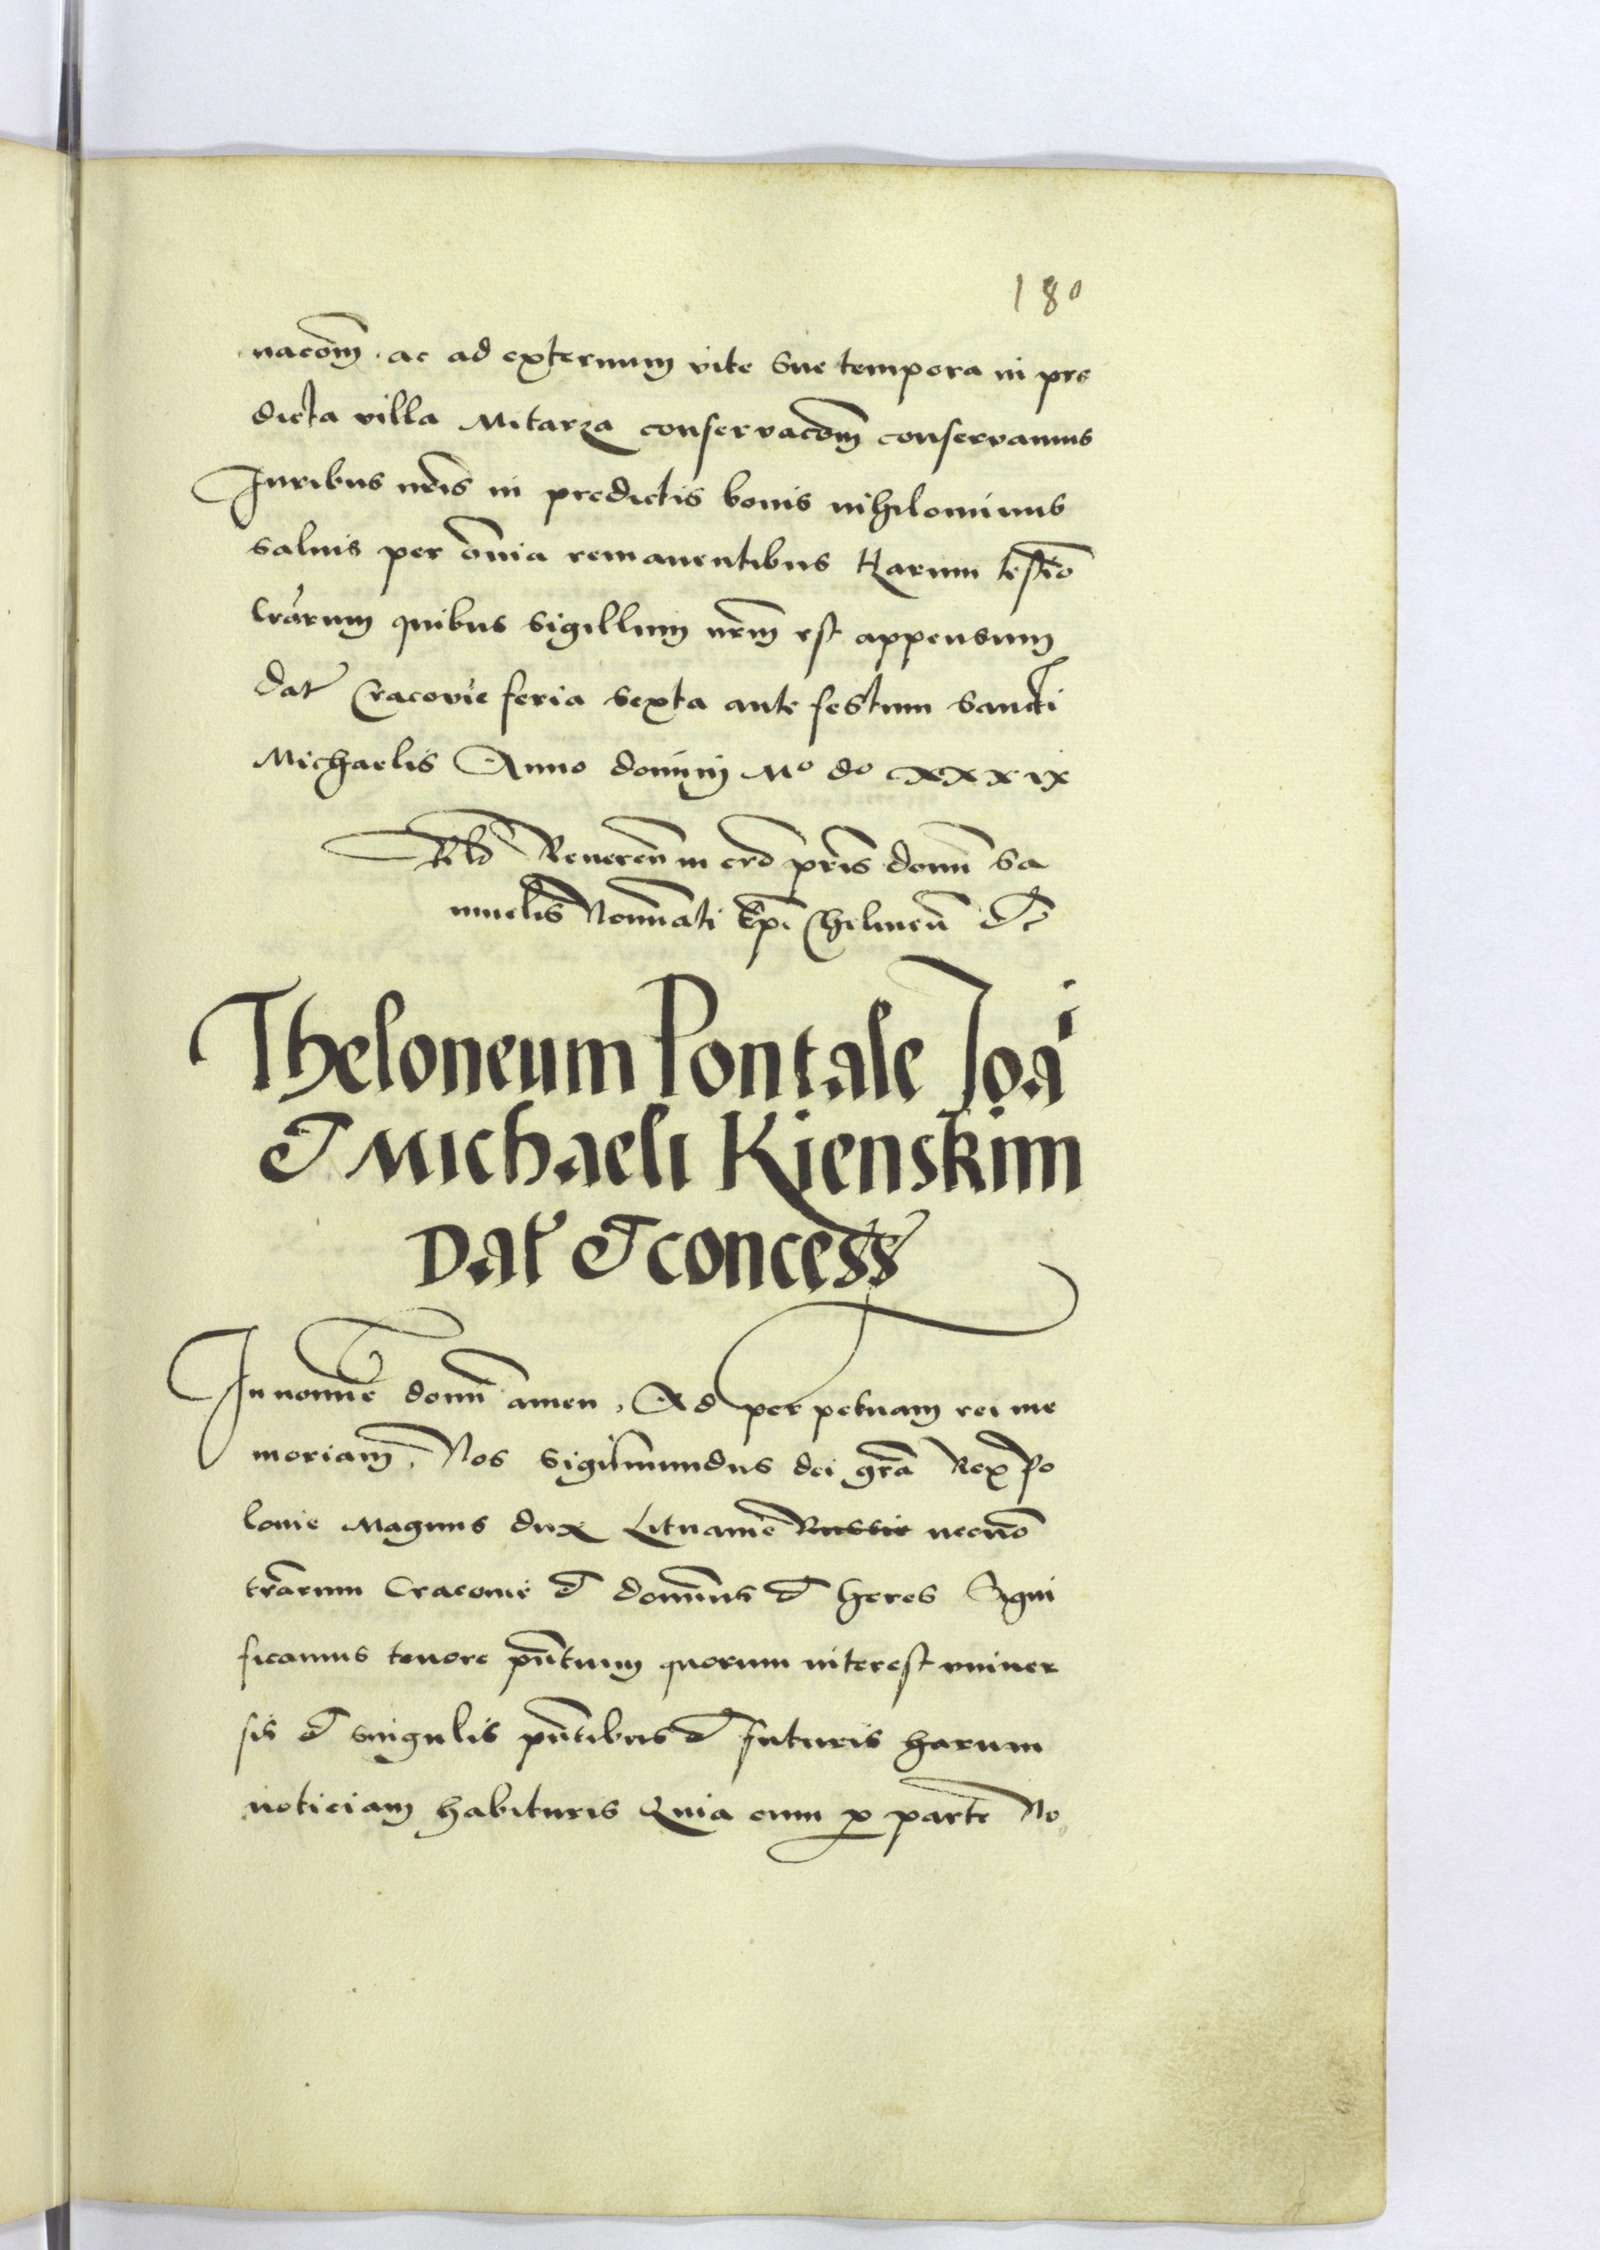 180
nacōm ac ad externum vite sue tempora in pre
dicta villa Mitarza conservacōm conservamus
Iuribus nrīs in predictis bonis nihilominus
salvis per ōnia remanentibus Harum testīo
lrārum quibus sigillum nrm̄ est appensum
Dat Cracovie feria sexta ante festum sancti
Michaelis Anno domini Mo do xxxix
Reverēn in crō pris domī Sa
muelis Nomīnati Ep̄i Chelmeñ etc
Theloneum Pontale Joāi
et Michaeli Kienskim
Dat et concess
In nomīe domī amen, Ad perpetuam rei me
moriam. Nos Sigismundus dei grā Rex Po
lonie Magnus dux Lituanie Russie necnō
trārum Cracovie et domīnus et heres Signi
ficamus tenore pn̄tium quorum interest univer
sis et singulis pn̄tibus et futuris harum
noticiam habituris Quia cum p parte No